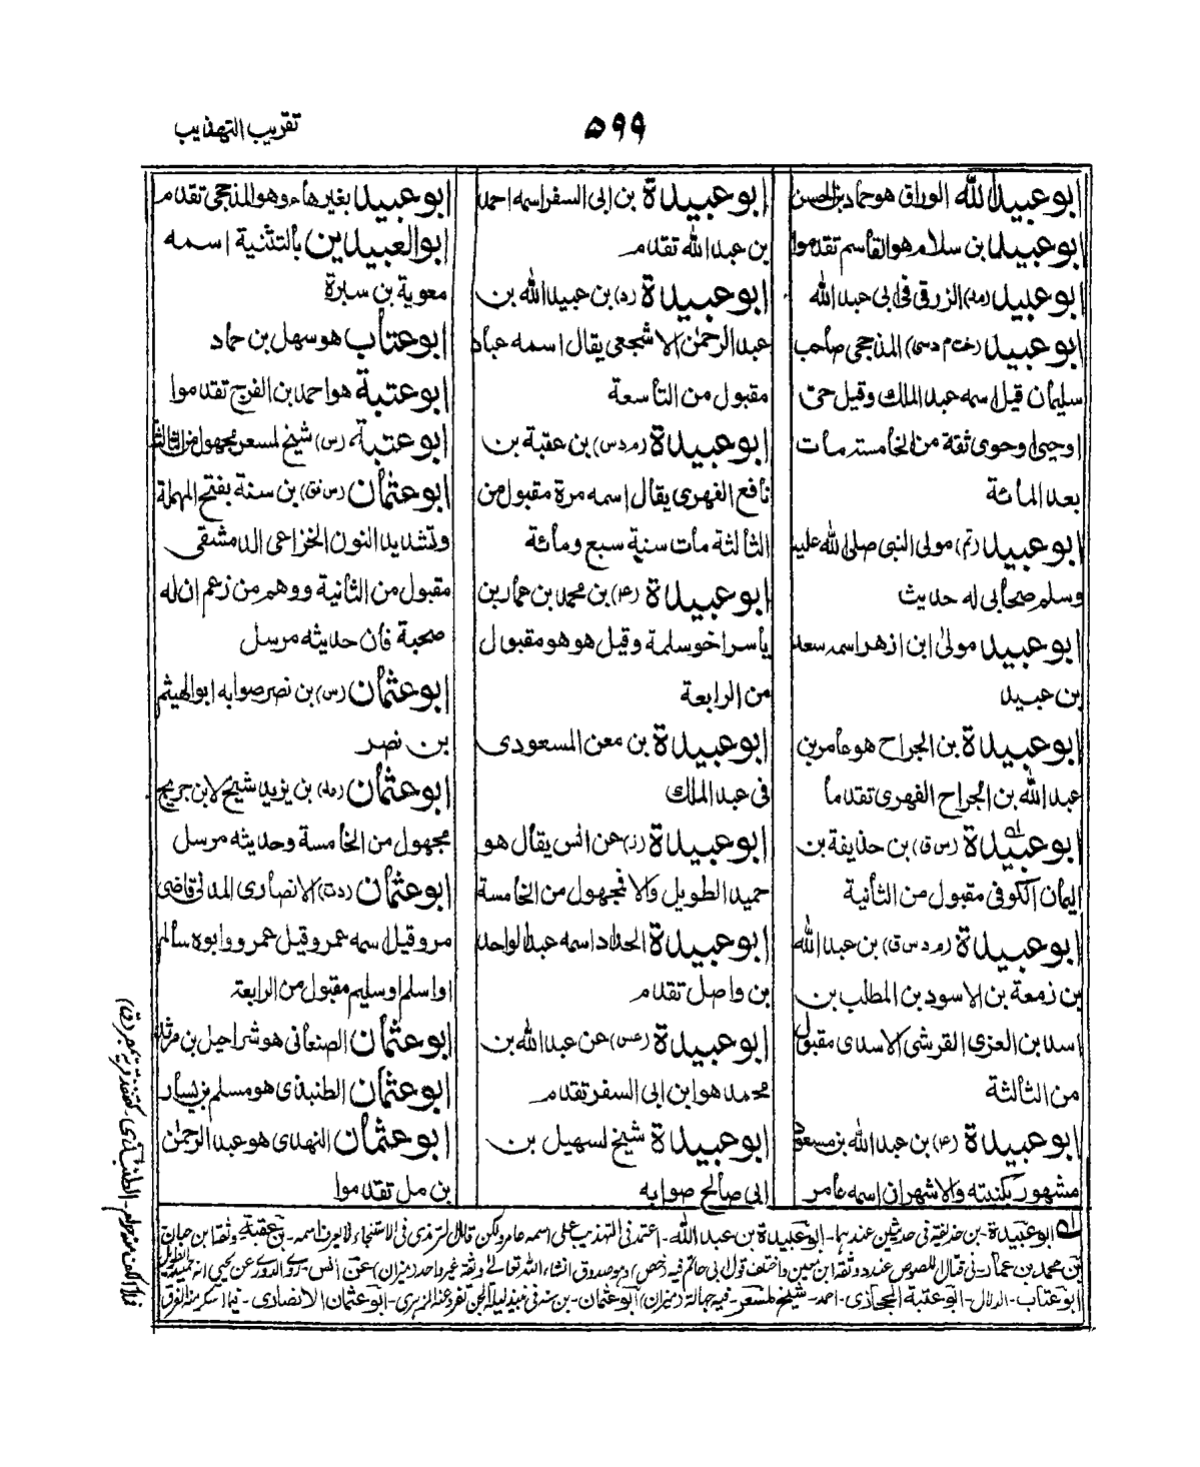 تقريب التهذيب
٥٩٩
ابو عبيد الله الوراق هو حماد بن الحسن
ابو عبيد بن سلام هو القاسم تقدموا
ابو عبيد (مد) الزرقى فى ابى عبد الله
ابو عبيد (خت م د س) المذحجى صاحب
سليمان قيل اسمه عبد الملك وقيل حى
او حيى او حوى ثقة من الخامسة مات
بعد المائة
ابو عبيد (تم) مولى النبى صلى الله عليه
وسلم صحابى له حديث
ابو عبيد مولى ابن ازهر اسمه سعد
بن عبيد
ابو عبيدة بن الجراح هو عامر بن
عبد الله بن الجراح الفهرى تقدما
ابو عبيدة (س ق) بن حذيفة بن
اليمان الكوفى مقبول من الثانية
ابو عبيدة (م د س ق) بن عبد الله
بن زمعة بن الاسود بن المطلب بن
اسد بن العزى القرشى الاسدى مقبول
من الثالثة
ابو عبيدة (ع) بن عبد الله بن مسعود
مشهور بكنيته والاشهر ان اسمه عامر
ابو عبيدة بن ابى السفر اسمه احمد
بن عبد الله تقدم
ابو عبيدة (د) بن عبيد الله بن
عبد الرحمن الاشجعى يقال اسمه عباد
مقبول من التاسعة
ابو عبيدة (م د س) بن عقبة بن
نافع الفهرى يقال اسمه مرة مقبول من
الثالثة مات سنة سبع ومائة
ابو عبيدة (ع) بن محمد بن عمار بن
ياسر اخو سلمة وقيل هو هو مقبول
من الرابعة
ابو عبيدة بن معن المسعودى
فى عبد الملك
ابو عبيدة (ز) عن انس يقال هو
حميد الطويل والا فمجهول من الخامسة
ابو عبيدة الحداد اسمه عبد الواحد
بن واصل تقدم
ابو عبيدة (عس) عن عبد الله بن
محمد هو ابن ابى السفر تقدم
ابو عبيدة شيخ لسهيل بن
ابى صالح صوابه
ابو عبيد بغير هاء وهو المذحجى تقدم
ابو العبيدين بالتثنية اسمه
معوية بن سبرة
ابو عتاب هو سهل بن حماد
ابو عتبة هو احمد بن الفرج تقدموا
ابو عتبة (س) شيخ لمسعر مجهول من الثالثة
ابو عثمان (س ق) بن سنة بفتح المهملة
وتشديد النون الخزاعى الدمشقى
مقبول من الثانية ووهم من زعم ان له
صحبة فان حديثه مرسل
ابو عثمان (س) بن نصر صوابه ابو الهيثم
بن نصر
ابو عثمان (مد) بن يزيد شيخ لابن جريج
مجهول من الخامسة وحديثه مرسل
ابو عثمان (د ت) الانصارى المدنى قاضى
مرو قيل اسمه عمر وقيل عمرو وابوه سالم
او اسلم او سليم مقبول من الرابعة
ابو عثمان الصنعانى هو شراحيل بن مرثد
ابو عثمان الطنبذى هو مسلم بن يسار
ابو عثمان النهدى هو عبد الرحمن
بن مل تقدموا
ابو عبيدة بن حذيفة فى حديثين عندهما - ابو عبيدة بن عبد الله - اعتمد فى التهذيب على اسمه عامر ولكن قال الترمذى فى الاستنجاء لا يعرف اسمه - بن عقبة وثقه ابن حبان
بن محمد بن عمار - فى قتال اللصوص عنده وثقه ابن معين واختلف قول ابى حاتم فيه وهو صدوق انشاء الله تعالى وثقه غير واحد (ميزان) عن انس - روى الدورى عن يحيى انه حميد الطويل
ابو عتاب - الدلال - ابو عتبة الحجازى - احمد - شيخ لمسعر - فيه جهالة (ميزان) ابو عثمان - بن سنة فى ليلة الجن تفرد عنه الزهرى - ابو عثمان الانصارى - فيما اسكر منه الفرق